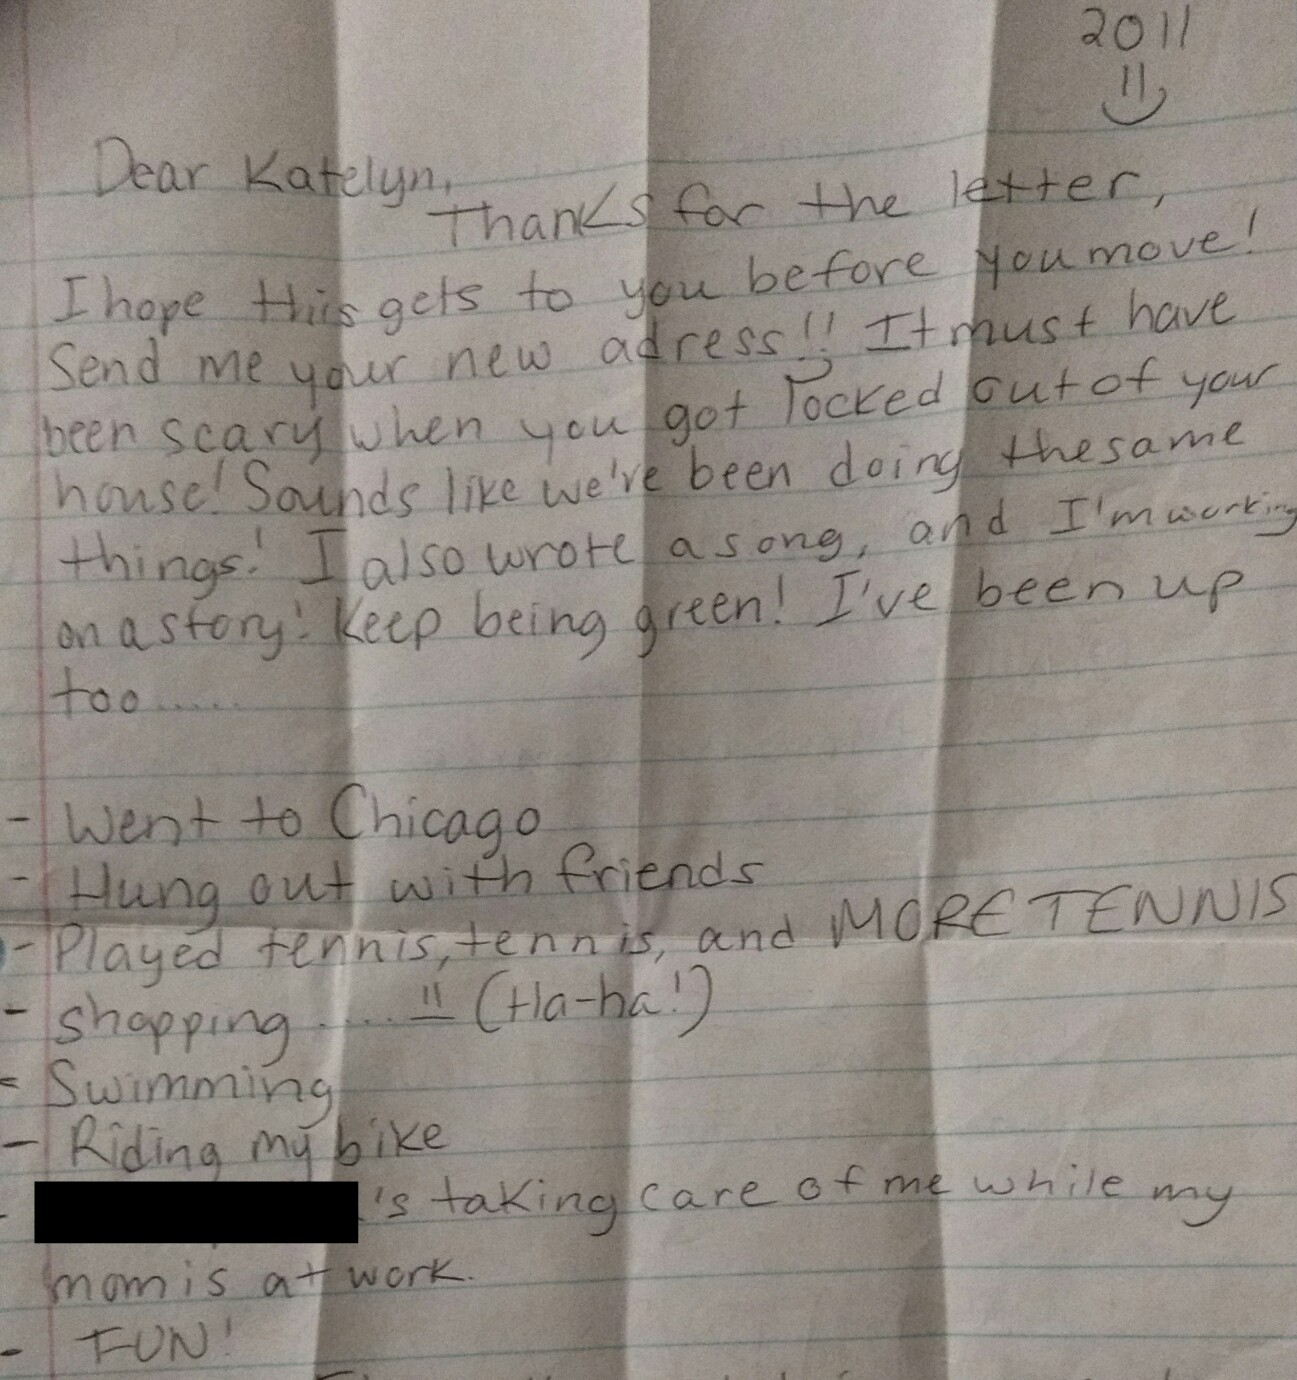 2011
Dear Katelyn,
Thanks for the letter,
I hope this gets to you before you move!
Send me your new adress!! It must have
been scary when you got locked out of your
house! Sounds like we've been doing the same
things! I also wrote a song, and I'm working
on a story! Keep being green! I've been up
too.....
- Went to Chicago
- Hung out with friends
- Played tennis, tennis, and MORE TENNIS
- shopping .... (Ha-ha!)
- Swimming
- Riding my bike
- 's taking care of me while my
mom is at work.
- FUN!